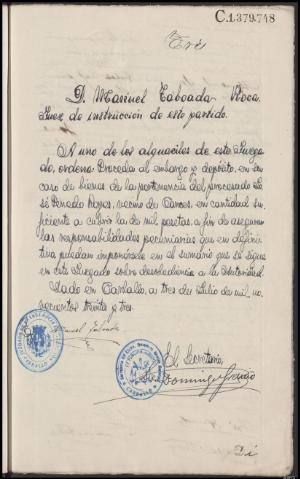 C.1.379.748
Tres
D. Manuel Taboada Roca
Juez de instrucción de este partido.
A uno de los alguaciles de este Juzga
do, ordena: Proceda al embargo y depósito, en su
caso de bienes de la pertenencia del procesado Jo
sé Penedo Rojas, vecino de Cances, en cantidad su
ficiente a cubrir la de mil pesetas, a fin de asegurar
las responsabilidades pecuniarias que en defini
tiva puedan imponérsele en el sumario que se sigue
en este Juzgado sobre desobediencia a la Autoridad.
Dado en Carballo, a tres de Julio de mil, no
vecientos treinta y tres.
Manuel Taboada
El Secretario,
Domingo
Di